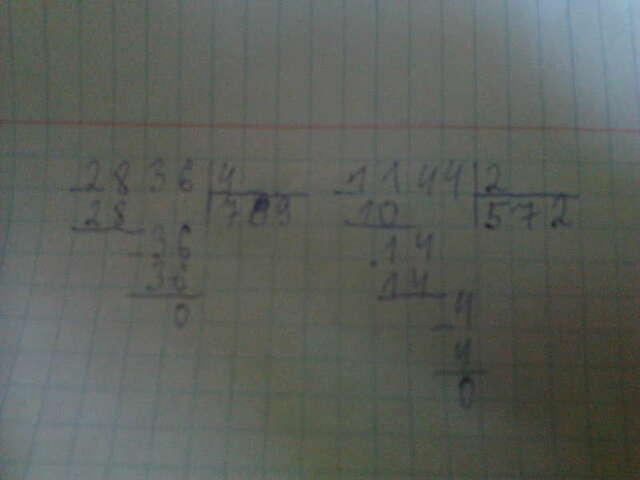 2836 4
28 709
-36
36
0
1144 2
10 572
14
14
-4
4
0